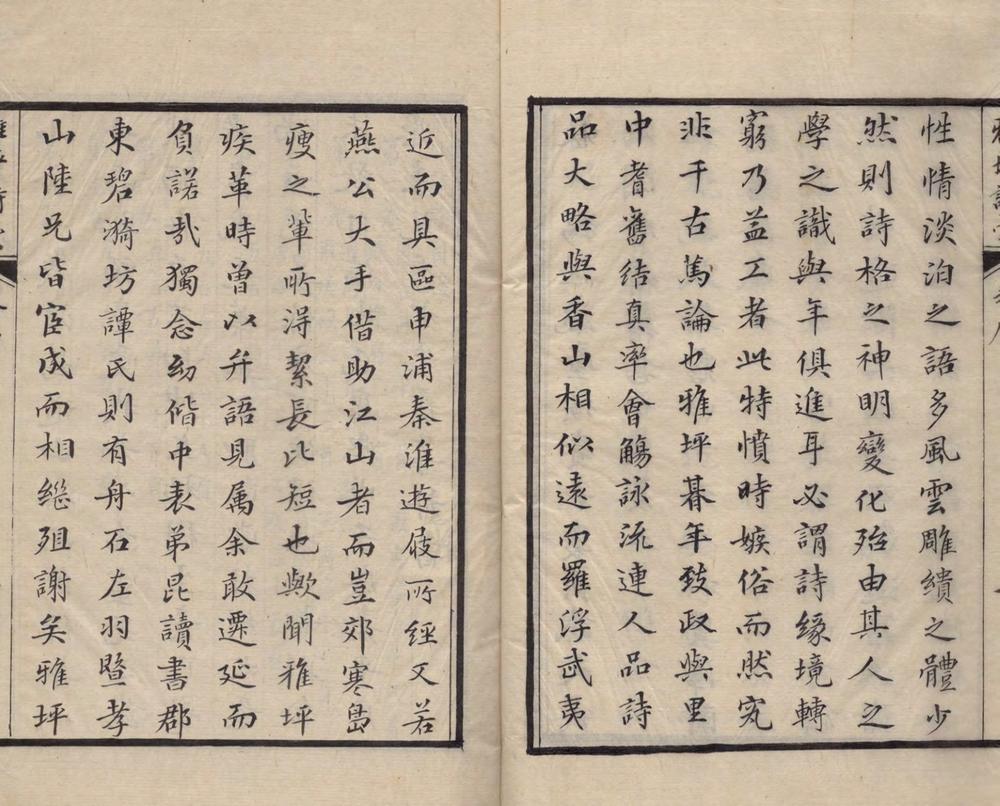 性情淡泊之語多風雲雕繢之體少
然則詩格之神明變化殆由其人之
學之識與年俱進耳必謂詩緣境轉
窮乃益工者此特憤時嫉俗而然究
非千古篤論也雅坪暮年致政與里
中耆舊結真率會觴詠流連人品詩
品大略與香山相似遠而羅浮武夷
近而具區申浦秦淮遊屐所經又若
燕公大手偕助江山者而豈郊寒島
瘦之輩所得絜長比短也歟聞雅坪
疾革時曾以弁語見属余敢遷延而
負諾哉獨念幼偕中表弟昆讀書郡
東碧漪坊譚氏則有舟石左羽曁孝
山陸兄皆宦成而相繼殂謝矣雅坪